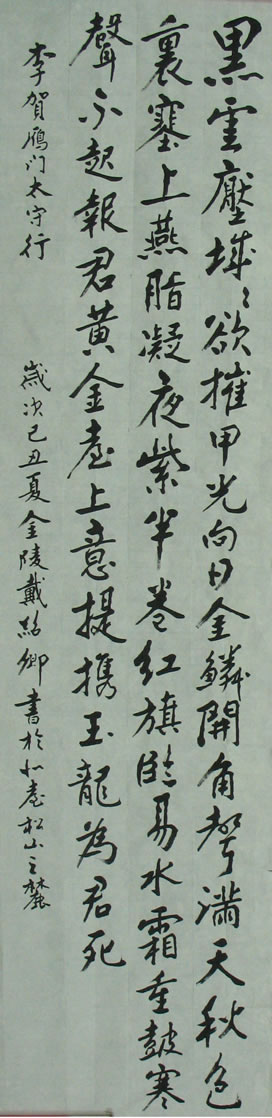 黑雲壓城〻欲摧甲光向日金鱗開角聲滿天秋色
裏塞上燕脂凝夜紫半卷紅旗臨易水霜重鼓寒
聲不起報君黃金臺上意提攜玉龍為君死
李賀鴈門太守行
歲次己丑夏金陵戴紹卿書於北臺松山之麓